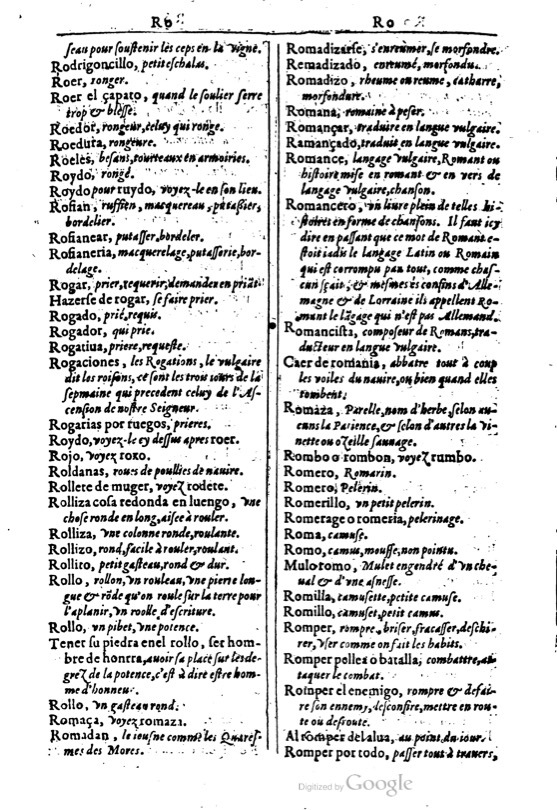 RO
seau pour soustenir les ceps en la vigne.
Rodrigoncillo, petit eschalas.
Roer, ronger.
Roer el çapato, quand le soulier serre
trop & blesse.
Roedor, rongeur, celuy qui ronge.
Roedura, rongeure.
Roeles, besant, tourteaux en armoiries.
Roydo, rongé.
Roydo pour ruydo, voyez-le en son lieu.
Rofian, ruffien, macquereau, putassier,
bordelier.
Rofianear, putasser, bordeler.
Rofianeria, macquerelage, putasserie, bor-
delage.
Rogar, prier, requerir, demander en priāt
Hazerse de rogar, se faire prier.
Rogado, prié, requis.
Rogador, qui prie.
Rogatiua, priere, requeste.
Rogaciones, les Rogations, le vulgaire
dit les roisons, ce sont les trois iours de la
sepmaine qui precedent celuy de l'As-
cension de nostre Seigneur.
Rogarias por ruegos, prieres.
Roydo, voyez-le cy dessus apres roer.
Rojo, voyez roxo.
Roldanas, roues de poullies de nauire.
Rollete de muger, voyez rodete.
Rolliza cosa redonda en luengo, vne
chose ronde en long, aisée à rouler.
Rolliza, vne colonne ronde, roulante.
Rollizo, rond, facile à rouler, roulant.
Rollito, petit gasteau, rond & dur.
Rollo, rollon, vn rouleau, vne pierre lon-
gue & rōde qu'on roule sur la terre pour
l'aplanir, vn roolle d'escriture.
Rollo, vn pibet, vne potence.
Tener su piedra enel rollo, ser hom-
bre de honrra, auoir sa place sur les de-
grez de la potence, c'est à dire estre hom-
me d'honneur.
Rollo, vn gasteau rond.
Romaça, voyez romaza.
Romadan, le ieusne comme les Quares-
mes des Mores.
RO
Romadizarse, s'enrumer, se morfondre.
Remadizado, enrumé, morfondu.
Romadizo, rheume ou reume, catharre,
morfondure.
Romana, romaine à peser.
Romançar, traduire en langue vulgaire.
Ramançado, traduit en langue vulgaire.
Romance, langage vulgaire, Romant ou
histoire mise en romant & en vers de
langage vulgaire, chanson.
Romancero, vn liure plein de telles hi-
stoires en forme de chansons. Il faut icy
dire en passant que ce mot de Romant e-
stoit iadis le langage Latin ou Romain
qui est corrompu par tout, comme chas-
cun sçait, & mesmes és confins d'Alle-
magne & de Lorraine ils appellent Ro-
mant le lāgage qui n'est pas Allemand.
Romancista, composeur de Romans, tra-
ducteur en langue vulgaire.
Caer de romania, abbatre tout à coup
les voiles du nauire, ou bien quand elles
tombent.
Romaza, Parelle, nom d'herbe, selon au-
cuns la Patience, & selon d'autres la vi-
nette ou ozeille sauuage.
Rombo o rombon, voyez rumbo.
Romero, Romarin.
Romero, Pelerin.
Romerillo, vn petit pelerin.
Romerage o romeria, pelerinage.
Roma, camuse.
Romo, camus, mousse, non pointu.
Mulo romo, Mulet engendré d'vn che-
ual & d'vne asnesse.
Romilla, camusette, petite camuse.
Romillo, camuset, petit camus.
Romper, rompre, briser, fracasser, deschi-
rer, vser comme on fait les habits.
Romper pelea o batalla, combattre, at-
taquer le combat.
Romper el enemigo, rompre & defai-
re son ennemy, desconfire, mettre en rou-
te ou desroute.
Al romper del alua, au point du iour.
Romper por todo, passer tout à trauers,
Digitized by Google